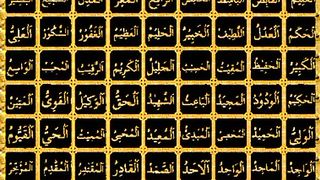 الْحَكَمُ الْعَدْلُ اللَّطِيفُ الْخَبِيرُ الْحَلِيمُ الْعَظِيمُ الْغَفُورُ الشَّكُورُ الْعَلِيُّ
الْكَبِيرُ الْحَفِيظُ الْمُقِيتُ الْحَسِيبُ الْجَلِيلُ الْكَرِيمُ الرَّقِيبُ الْمُجِيبُ الْوَاسِعُ
الْحَكِيمُ الْوَدُودُ الْمَجِيدُ الْبَاعِثُ الشَّهِيدُ الْحَقُّ الْوَكِيلُ الْقَوِيُّ الْمَتِينُ
الْوَلِيُّ الْحَمِيدُ الْمُحْصِي الْمُبْدِئُ الْمُعِيدُ الْمُحْيِي الْمُمِيتُ الْحَيُّ الْقَيُّومُ
الْوَاجِدُ الْمَاجِدُ الْوَاحِدُ الْأَحَدُ الصَّمَدُ الْقَادِرُ الْمُقْتَدِرُ الْمُقَدِّمُ الْمُؤَخِّرُ